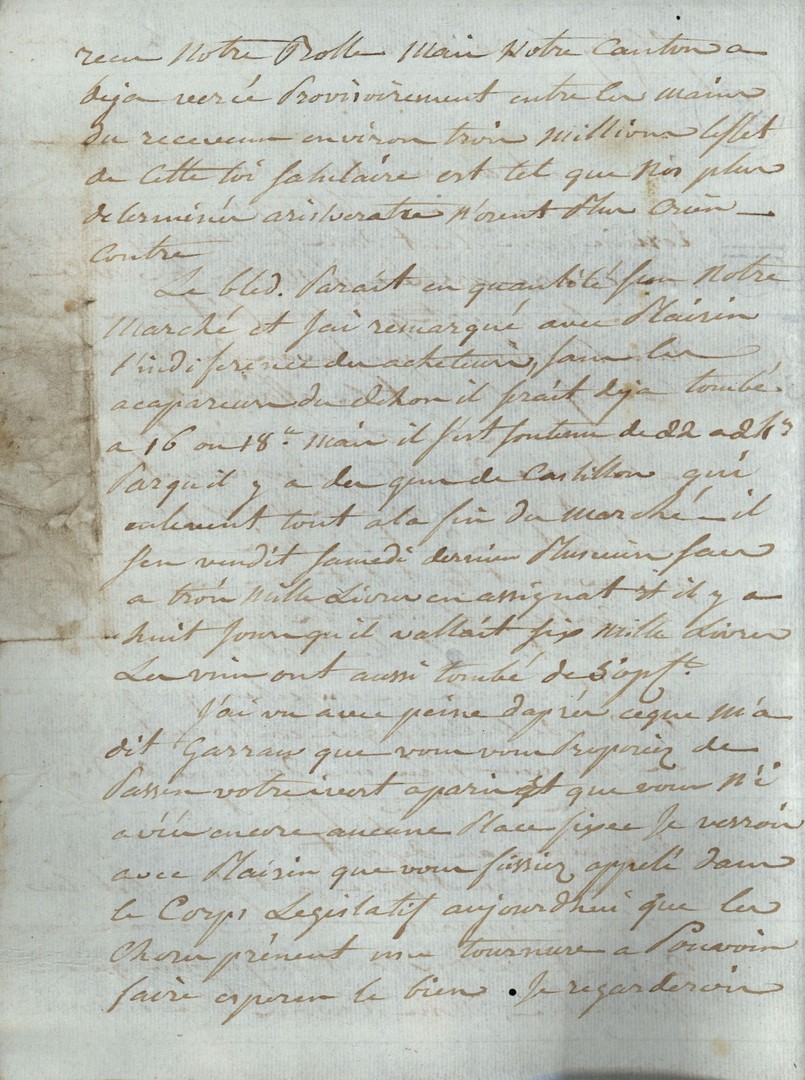 recu Notre Rolle Mais Notre Canton a
deja versée Provisoirement entre les mains
du receveur environ trois millions leffet
de Cette loi salutaire est tel que Nos plus
determinés aristocrates N'osent Plus Crier
Contre
Le bled. Parait en quantité sur Notre
Marché et J'ai remarqué avec Plaisir
l'indiference des acheteurs, sans les
acapareurs du dehors il serait deja tombé
a 16 ou 18 Mais il s'est soutenu de 22 a 24
Parqu il y a des gens de Castillon qui
enlevent tout a la fin du marché il
s'en vendit samedi dernier Plusieurs sacs
a trois Mille Livres en assignat et il y a
huit Jours qu il vallait six Mille Livres
Les vins ont aussi tombé de
J'ai vu avec peine daprés ceque M'a
dit Garrau que vous vous Proposiez de
Passer votre ivert a paris et que vous N'i
aviez encore aucune Place fixee Je verrois
avec Plaisir que vous fussiez appelé dans
le Corps Legislatif aujourdhui que les
Choses prénent une tournure a Pouvoir
faire esperer le bien . Je regarderois